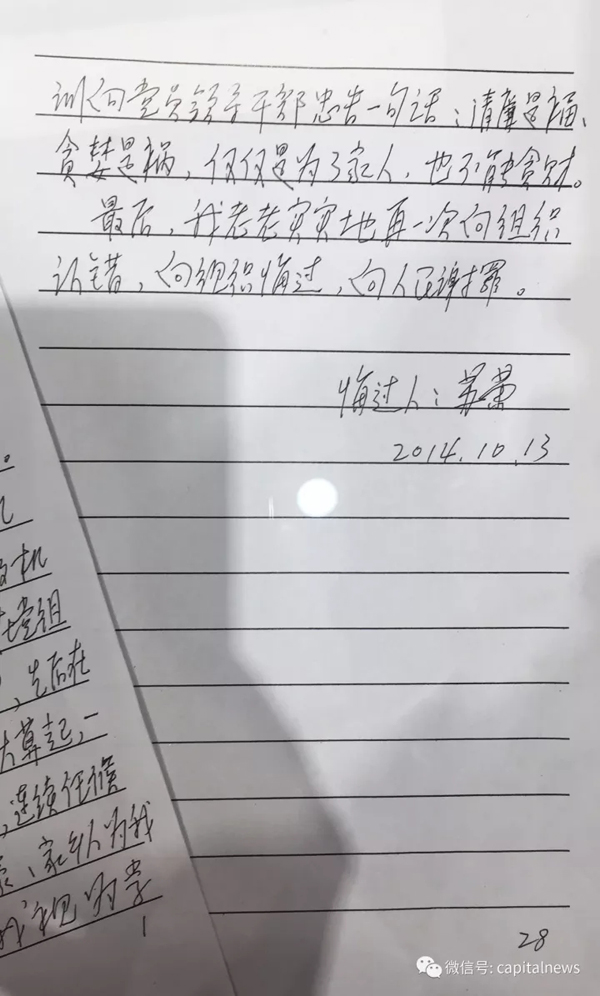 训向党员领导干部忠告一句话：清廉是福、
贪婪是祸，仅仅是为了家人，也不能贪财。
最后，我老老实实地再一次向组织
认错，向组织悔过，向人民谢罪。
悔过人：苏荣
2014.10.13
。
机
党组
，先后在
算起，一
，连续任职
、家乡人为我
视为
1
28
微信号: capitalnews